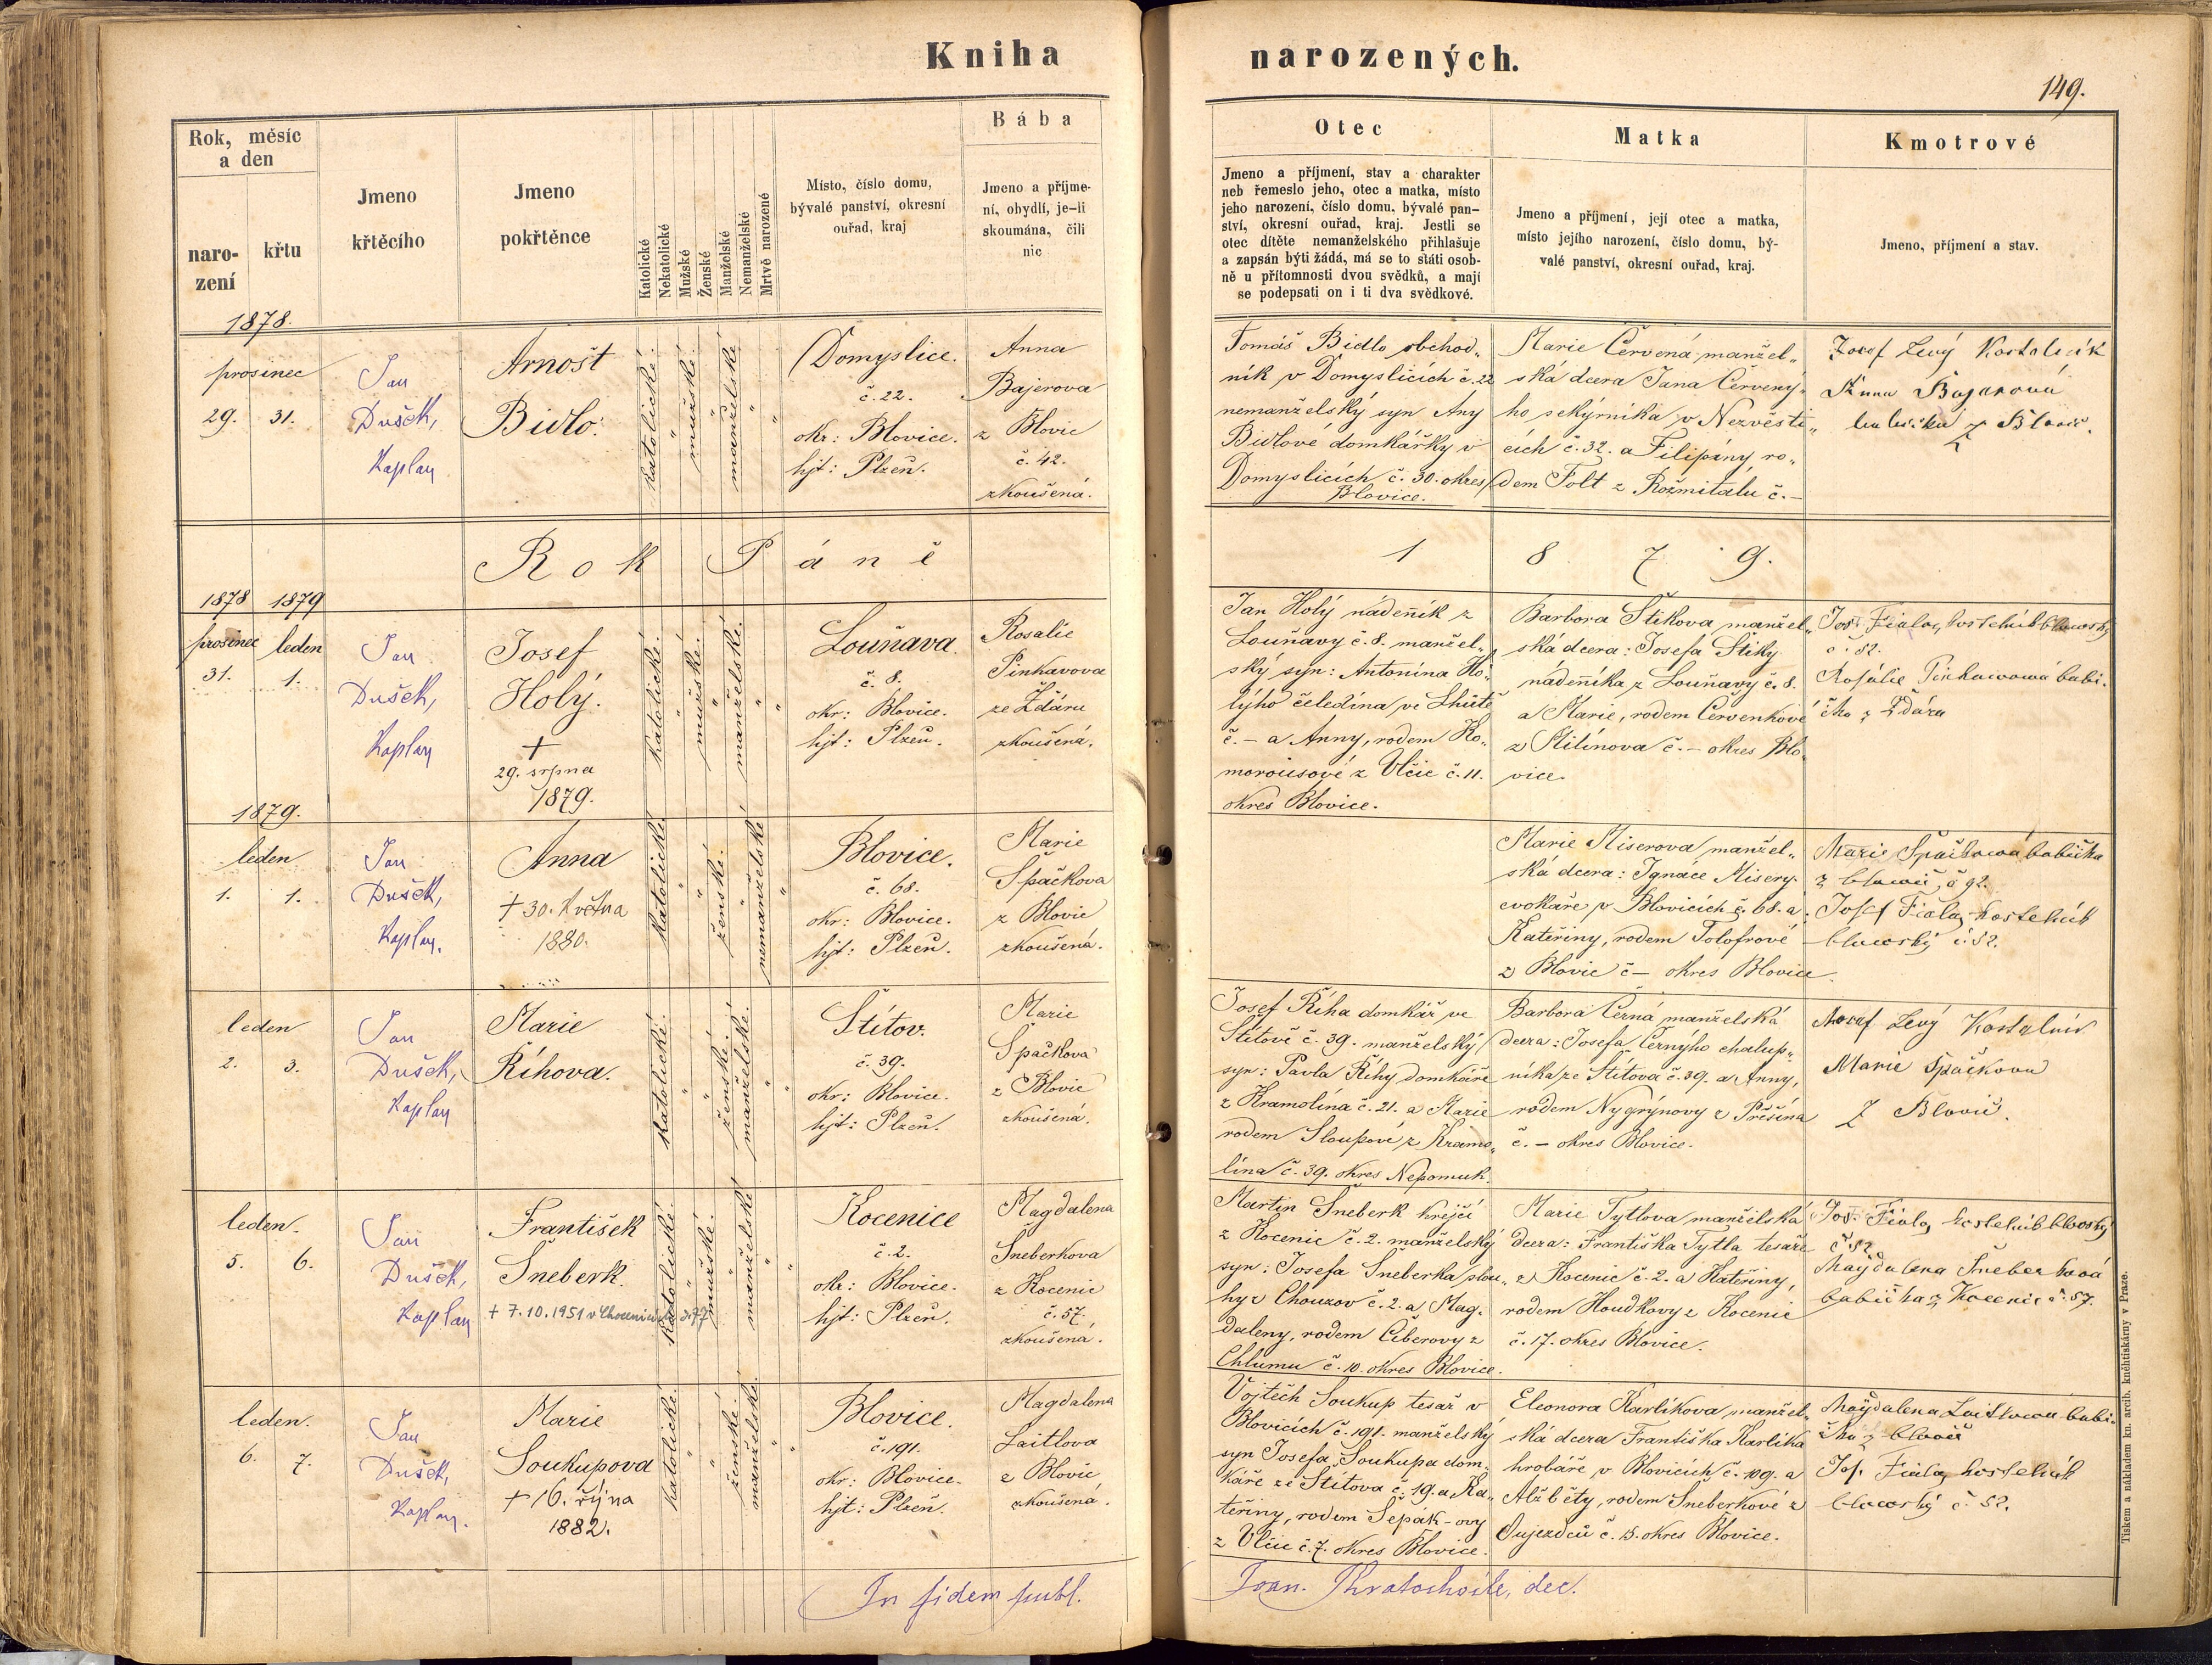 Kniha narozených.
149.
Rok, měsíc
a den
naro-
zení
křtu
Jmeno
křtěcího
Jmeno
pokřtěnce
Katolické
Nekatolické
Mužské
Ženské
Manželské
Nemanželské
Mrtvě narozené
Místo, číslo domu,
bývalé panství, okresní
ouřad, kraj
Bába
Jmeno a příjme-
ní, obydlí, je-li
skoumána, čili
nic
Otec
Jmeno a příjmení, stav a charakter
neb řemeslo jeho, otec a matka, místo
jeho narození, číslo domu, bývalé pan-
ství, okresní ouřad, kraj. Jestli se
otec dítěte nemanželského přihlašuje
a zapsán býti žádá, má se to státi osob-
ně u přítomnosti dvou svědků, a mají
se podepsati on i ti dva svědkové.
Matka
Jmeno a příjmení, její otec a matka,
místo jejího narození, číslo domu, bý-
valé panství, okresní ouřad, kraj.
Kmotrové
Jmeno, příjmení a stav.
1878.
prosinec
29. 31.
Jan
Dušek,
Kaplan
Arnošt
Bidlo.
katolické.
mužské.
manželské
Domyslice.
č. 22.
okr: Blovice.
hjt: Plzeň.
Anna
Bajerova
z Blovic
č. 42.
zkoušená.
Tomáš Bidlo obchod„
ník v Domyslicích č. 22
nemanželský syn Any
Bidlové domkářky v
Domyslicích č. 30. okres
Blovice.
Marie Červená manžel„
ská dcera Jana Červený„
ho sekýrníka v Nezvěsti„
cích č. 32. a Filipány ro„
dem Folt z Rožmitálu č. –
Josef Levý Kostelník
Anna Bayerová
z Blovic.
Rok Páně 1879.
1878 1879
prosinec leden
31. 1.
Jan
Dušek,
Kaplan
Josef
Holý.
†
29. srpna
1879.
katolické.
mužské.
manželské.
Louňava.
č. 8.
okr: Blovice.
hjt: Plzeň.
Rosalie
Pinkavova
ze Ždáru
zkoušená.
Jan Holý nádeník z
Louňavy č. 8. manžel„
ský syn: Antonína Ho„
lýho čeledína ve Lhůtě
č. – a Anny, rodem Ko„
morousové z Vlčic č. 11.
okres Blovice.
Barbora Štikova manžel„
ská dcera: Josefa Štiky
nádeníka z Louňavy č. 8.
a Marie, rodem Červenkové
z Milínova č. – okres Blo„
vice.
Jos. Fiala, kostelník blowský
č. 52.
Rosalie Pinkawowá babi-
čka z Ždáru
1879.
leden
1. 1.
Jan
Dušek,
Kaplan.
Anna
† 30. Května
1880.
katolické.
ženské.
nemanželské
Blovice.
č. 68.
okr: Blovice.
hjt: Plzeň.
Marie
Špačkova
z Blovic
zkoušená.
Marie Miserova manžel„
ská dcera: Ignáce Misery
cvokaře v Blovicích č. 68. a
Kateřiny, rodem Tolofrové
z Blovic č – okres Blovice.
Marie Špačkowá babička
z blowic, č 92.
Josef Fiala, kostelník
blowský č. 52.
leden
2. 3.
Jan
Dušek,
Kaplan
Marie
Říhova.
katolické.
ženské.
manželské.
Štítov.
č. 39.
okr: Blovice.
hjt: Plzeň.
Marie
Špačkova
z Blovic
zkoušená.
Josef Říha domkář ve
Štítově č. 39. manželský
syn: Pavla Říhy domkáře
z Kramolína č. 21. a Marie
rodem Sloupové z Kramo„
lína č. 39. okres Nepomuk.
Barbora Černá manželská
dcera: Josefa Černýho chalup„
níka ze Štítova č. 39. a Anny,
rodem Nygrýnovy z Přešína
č. – okres Blovice.
Josef Levý Kostelník
Marie Špačkova
Z Blovic.
leden.
5. 6.
Jan
Dušek,
Kaplan
František
Šneberk.
† 7.10.1951 v Chocenicích č. 77
katolické
mužské.
manželské
Kocenice
č. 2.
okr: Blovice.
hjt: Plzeň.
Magdalena
Šneberkova
z Kocenic
č. 57.
zkoušená.
Martin Šneberk krejčí
z Kocenic č. 2. manželský
syn: Josefa Šneberka slou„
hy z Chouzov č. 2. a Mag„
daleny, rodem Čiberovy z
Chlumu č. 10. okres Blovice.
Marie Tytlova manželská
dcera: Františka Tytla tesaře
z Kocenic č. 2. a Kateřiny,
rodem Houdkovy z Kocenic
č. 17. okres Blovice.
Jos. Fiala, kostelník blowský
č 52
Magdalena Šneberková
babička z Kocenic č. 57.
leden.
6. 7.
Jan
Dušek,
Kaplan.
Marie
Soukupova
† 16. října
1882.
katolické.
ženské.
manželské.
Blovice.
č. 191.
okr: Blovice.
hjt: Plzeň.
Magdalena
Laitlova
z Blovic
zkoušená.
Vojtěch Soukup tesař v
Blovicích č. 191. manželský
syn Josefa Soukupa dom„
káře ze Štítova č. 19. a Ka„
teřiny, rodem Šepák-ovy
z Vlčic č. 7. okres Blovice.
Eleonora Karlíkova manžel„
ská dcera Františka Karlíka
hrobáře v Blovicích č. 109. a
Alžběty, rodem Šneberkové z
Oujezdců č. 15. okres Blovice.
Magdalena Laitlowá babi-
čka z blowic
Jos. Fiala, kostelník
blowský č. 52.
In fidem publ. Joan. Kratochvile, dec.
Tiskem a nákladem kn. arcib. kněhtiskárny v Praze.